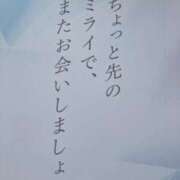 ちょっと先の
ミライで、
またお会いしましょ